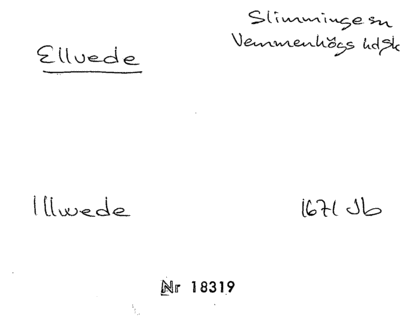 Slimminge sn
Vemmenhögs hdsk
Ellvede
Illwede 1671 Jb
Nr 18319